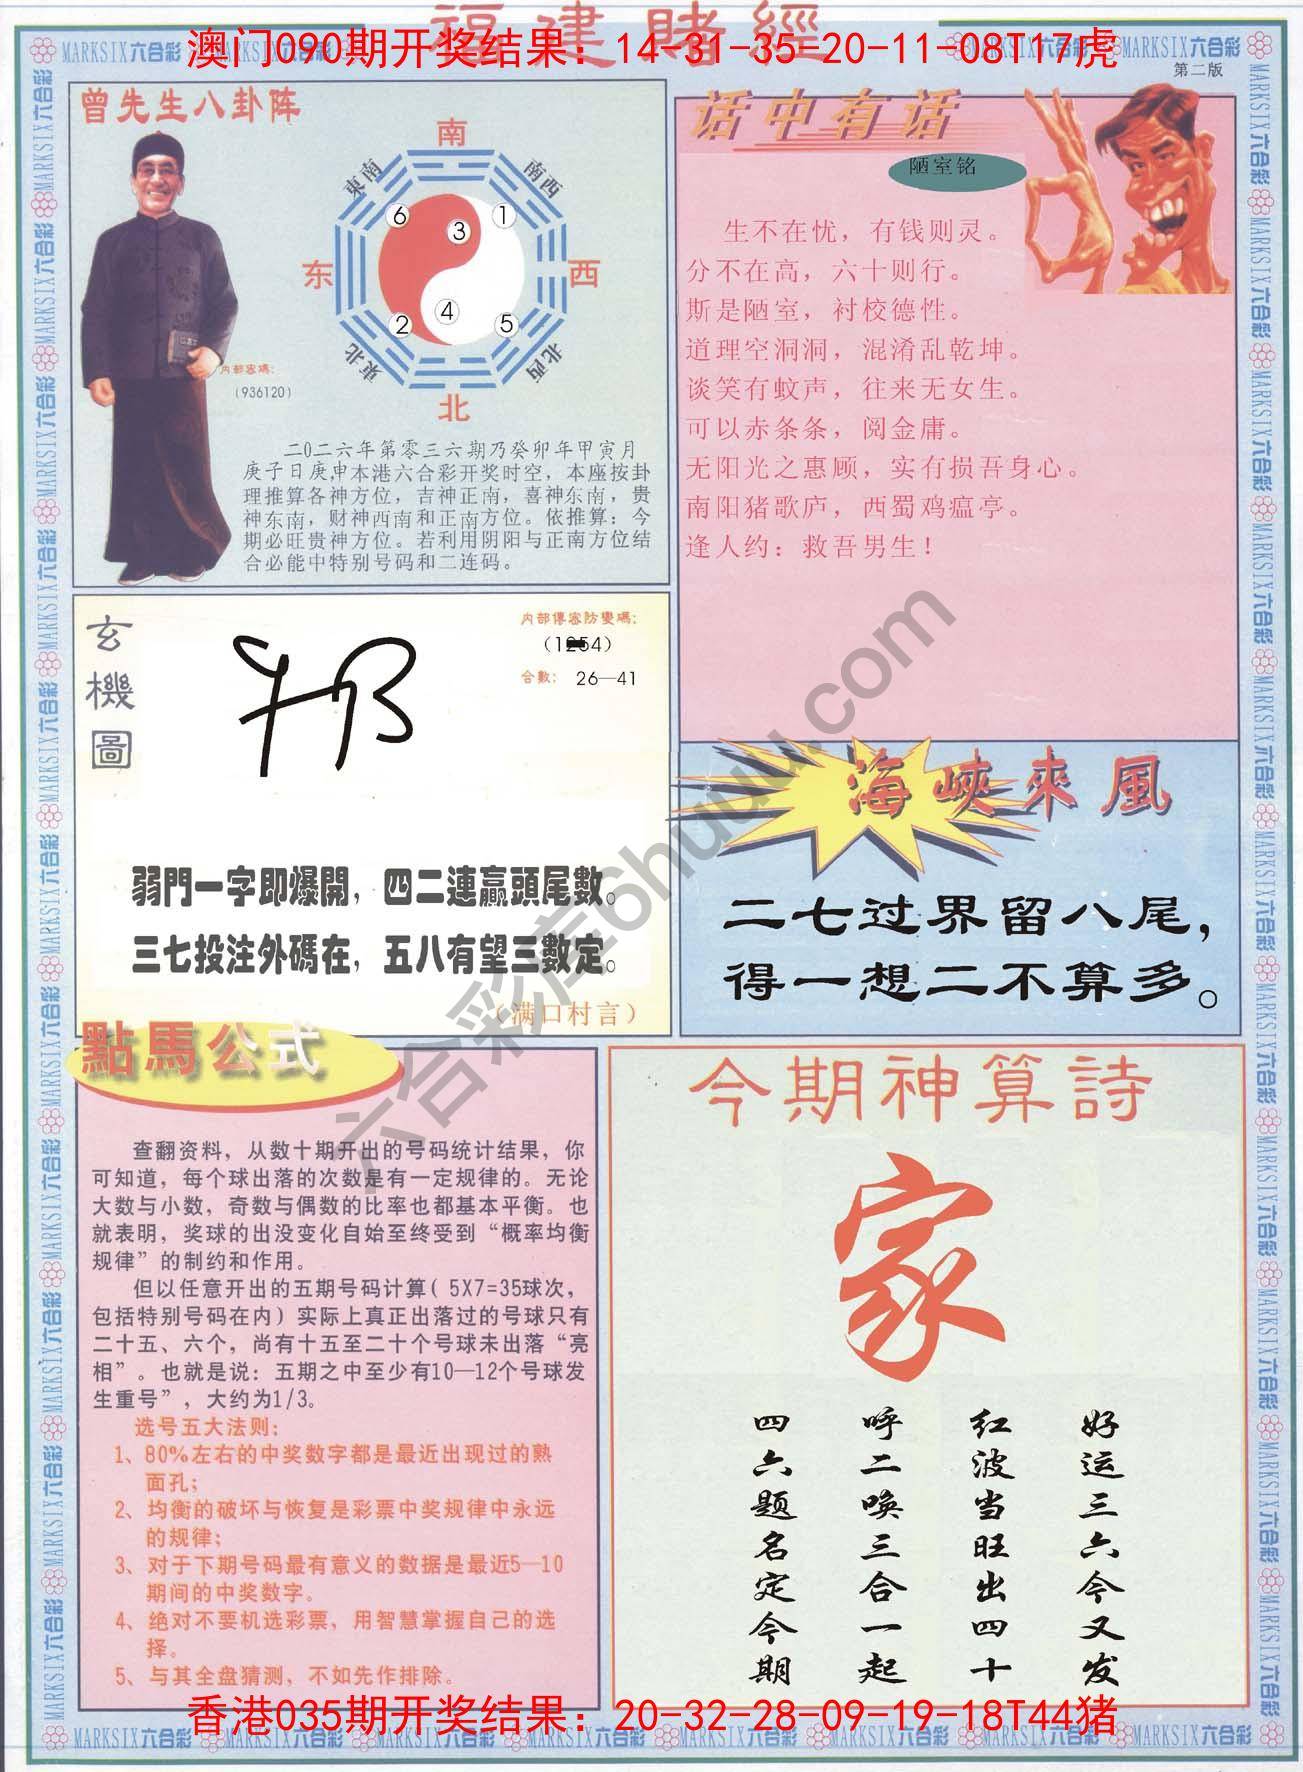 福建賭經
澳门090期开奖结果：14-31-35-20-11-08T17虎
MARKSIX六合彩
第二版
曾先生八卦阵
南
東南
南西
6
3
1
东
西
4
2
5
東北
北西
北
内部密碼：
（936120）
二0二六年第零三六期乃癸卯年甲寅月
庚子日庚申本港六合彩开奖时空，本座按卦
理推算各神方位，吉神正南，喜神东南，贵
神东南，财神西南和正南方位。依推算：今
期必旺贵神方位。若利用阴阳与正南方位结
合必能中特别号码和二连码。
话中有话
陋室铭
生不在忧，有钱则灵。
分不在高，六十则行。
斯是陋室，衬校德性。
道理空洞洞，混淆乱乾坤。
谈笑有蚊声，往来无女生。
可以赤条条，阅金庸。
无阳光之惠顾，实有损吾身心。
南阳猪歌庐，西蜀鸡瘟亭。
逢人约：救吾男生！
玄機圖
内部傳密防變碼：
合數：26—41
弱門一字即爆開，四二連贏頭尾數。
三七投注外碼在，五八有望三數定。
（满口村言）
海峽來風
二七过界留八尾，
得一想二不算多。
點馬公式
查翻资料，从数十期开出的号码统计结果，你
可知道，每个球出落的次数是有一定规律的。无论
大数与小数，奇数与偶数的比率也都基本平衡。也
就表明，奖球的出没变化自始至终受到“概率均衡
规律”的制约和作用。
但以任意开出的五期号码计算（5X7=35球次，
包括特别号码在内）实际上真正出落过的号球只有
二十五、六个，尚有十五至二十个号球未出落“亮
相”。也就是说：五期之中至少有10—12个号球发
生重号”，大约为1/3。
选号五大法则：
1、80%左右的中奖数字都是最近出现过的熟
面孔；
2、均衡的破坏与恢复是彩票中奖规律中永远
的规律；
3、对于下期号码最有意义的数据是最近5—10
期间的中奖数字。
4、绝对不要机选彩票，用智慧掌握自己的选
择。
5、与其全盘猜测，不如先作排除。
今期神算詩
家
好运三六今又发
红波当旺出四十
呼二唤三合一起
四六题名定今期
六合彩库6huuu.com
香港035期开奖结果：20-32-28-09-19-18T44猪